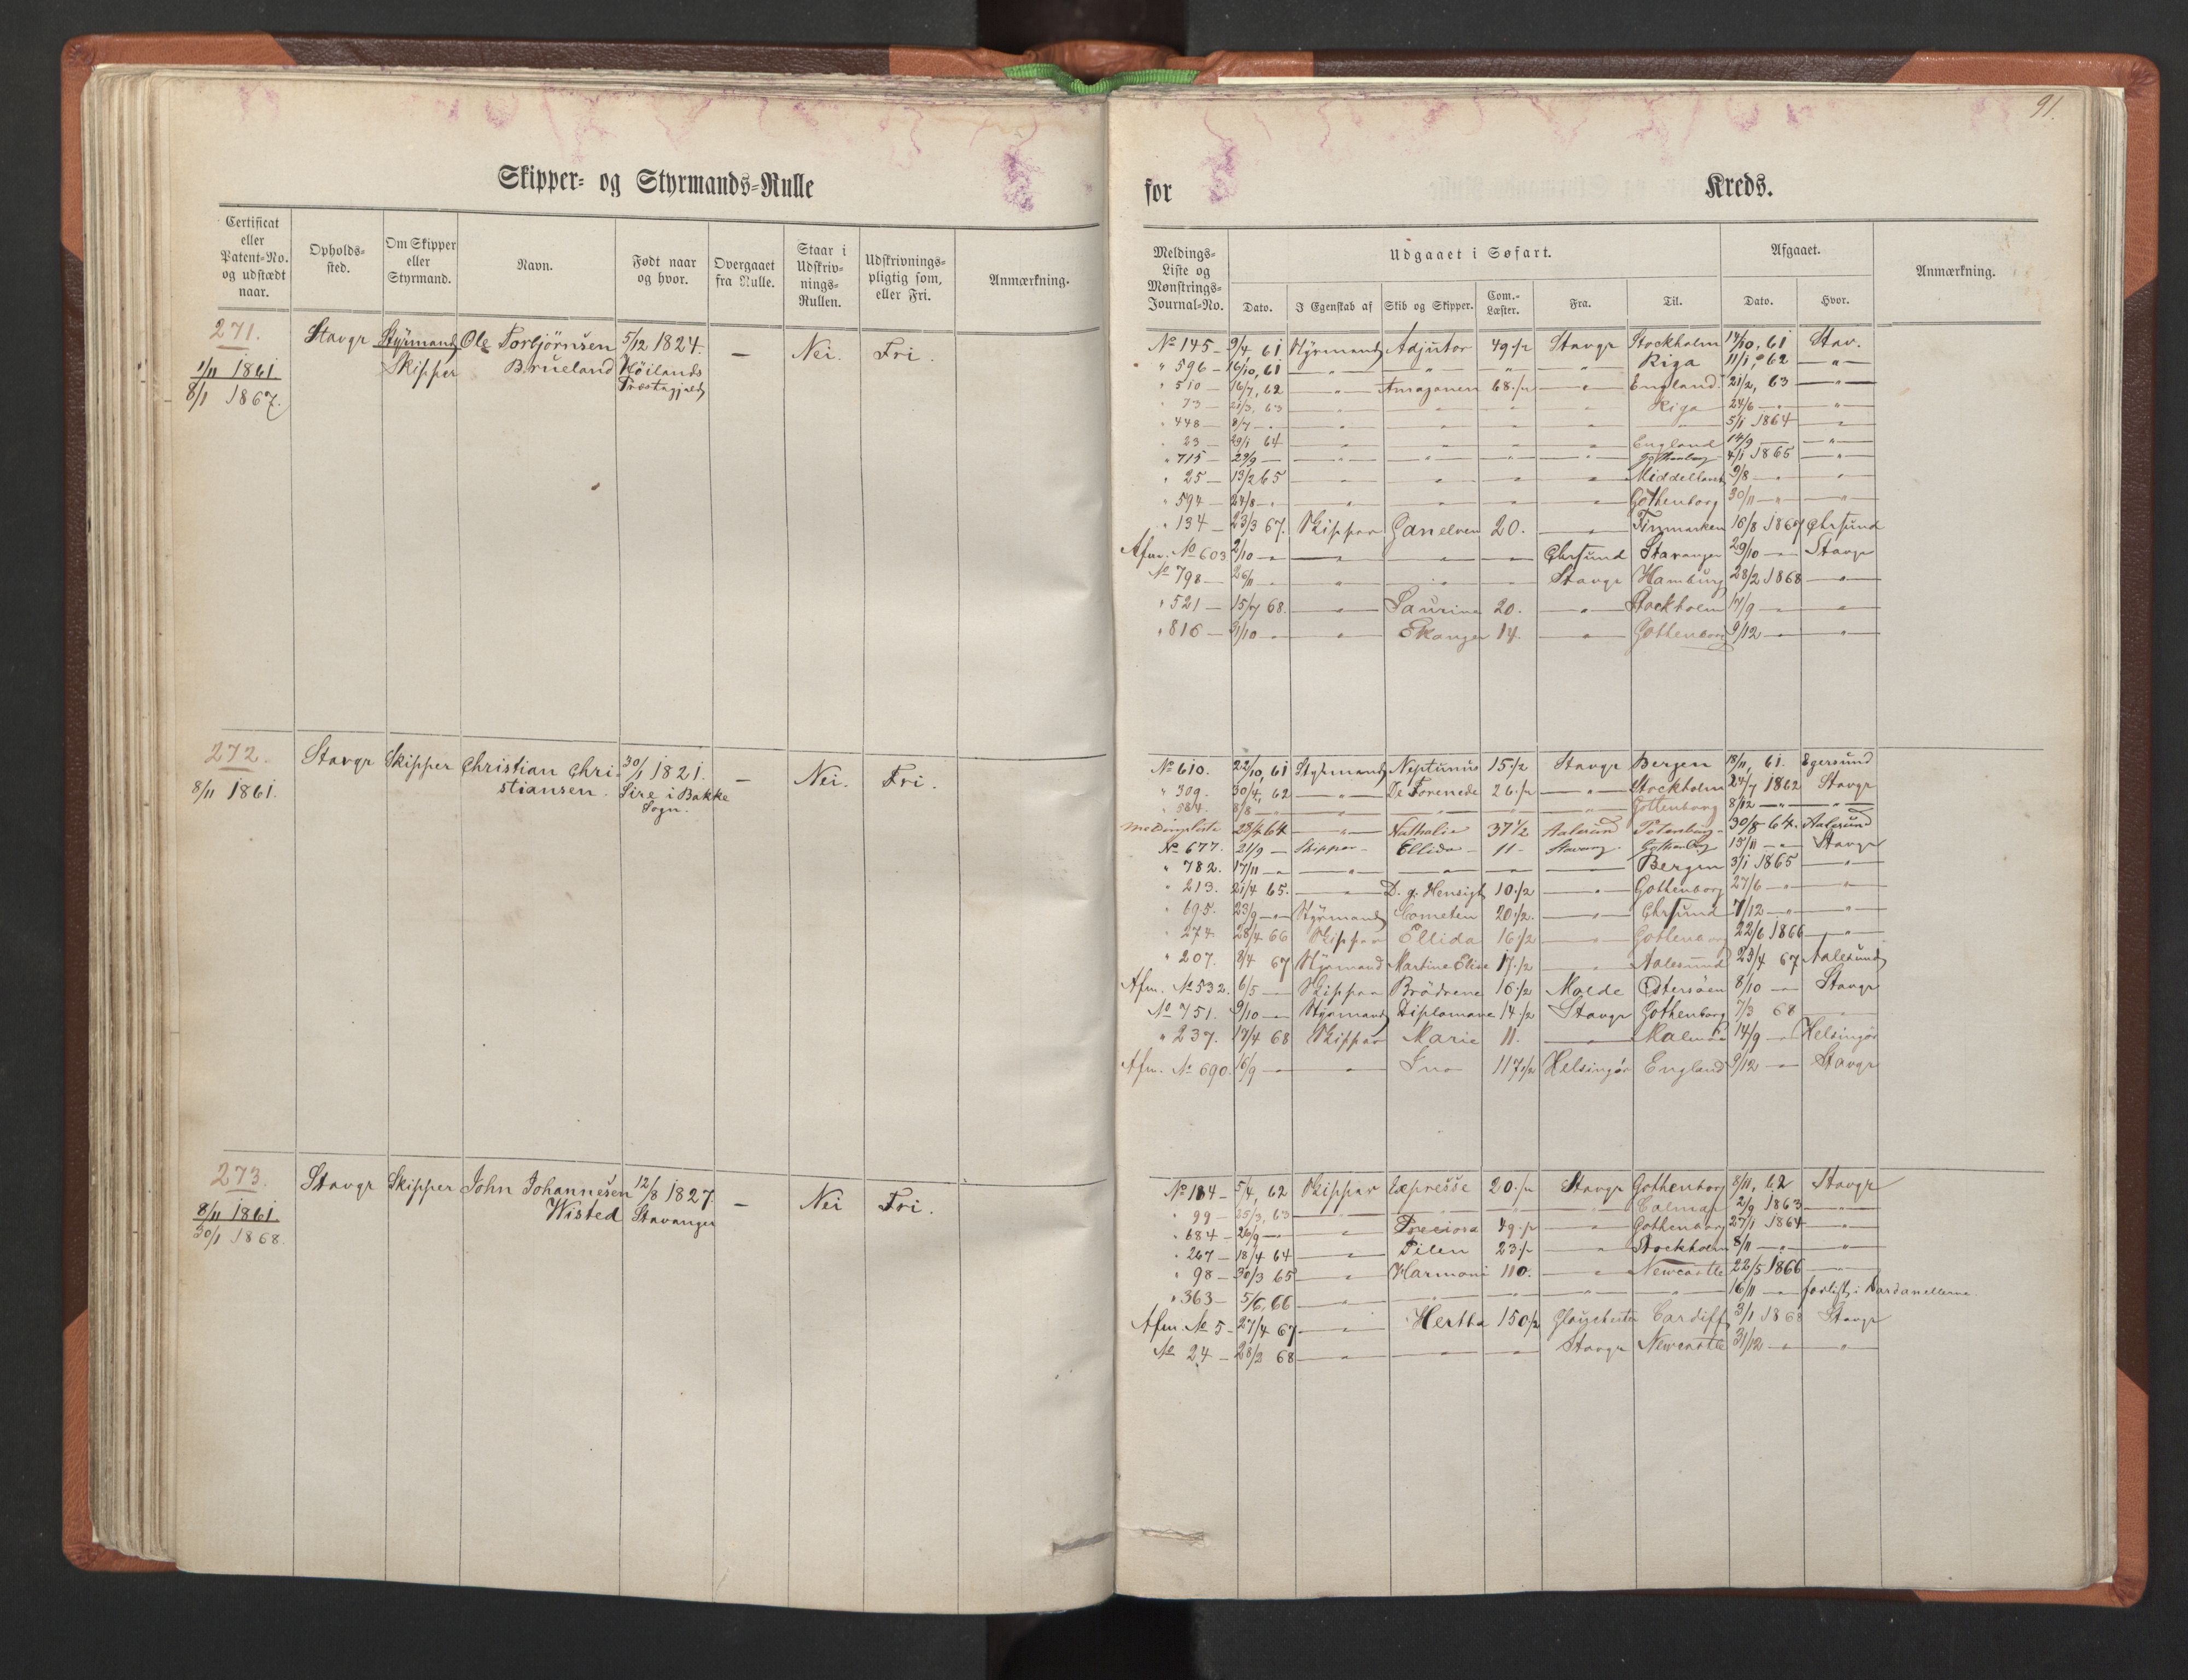 91.
Skipper- og Styrmands-Rulle
for Kreds.
Certificat eller Patent-No. og udstædt naar.
Opholds-sted.
Om Skipper eller Styrmand.
Navn.
Født naar og hvor.
Overgaaet fra Rulle.
Staar i Udskriv-nings-Rullen.
Udskrivnings-pligtig som, eller Fri.
Anmærkning.
Meldings-Liste og Mønstrings-Journal-No.
Udgaaet i Søfart.
Afgaaet.
Anmærkning.
Dato. I Egenskab af Skib og Skipper. Com.-Læster. Fra. Til. Dato. Hvor.
271. Stavgr Styrmand Ole Torbjörnsen 5/12 1824. — Nei. Fri.
1/11 1861. Skipper Brueland Höilands
8/1 1867. Præstegjæld
No 145 — 9/4, 61 Styrmand Adjutor 49 1/2 Stavgr Stockholm 17/10, 61 Stav.
" 596 — 16/10, 61 — " — " " " Riga 11/1, 62 — " —
" 510 — 16/7, 62 — " — Amaganen 68 1/2 — " England. 21/2, 63 — " —
" 73 — 21/3, 63 — " — " " " Riga 24/6 — " — " —
" 448 — 8/7 — " — " — " " " — " — 5/1 1864 — " —
" 23 — 29/1 64 — " — " " " England 14/9 — " —
" 715 — 29/9 — — " — " " " Gothenborg 4/1 1865 — " —
" 25 — 13/2 65 — " — " " " Middelhavet 9/8 — " — " —
" 594 — 24/8 — " — " — " " " Gothenborg 30/11 — " — " —
" 134 — 23/3 67. Skipper Ganelven 20. — " — Finmarken 16/8 1867 Chrsund
Afm. No 603 2/10 — " — " — " — " — Chrsund Stavanger 29/10 — " — Stavgr
No 798 — 26/11 — " — " — " — " — Stavgr Hamburg 28/2 1868 — " —
" 521 — 15/7 68. — " — Laurine 20. — " — Stockholm 17/9 — " — " —
" 816 — 31/10 — " — " — Ekanger 14. — " — Gothenborg 9/12 — " — " —
272. Stavgr Skipper Christian Chri- 30/1 1821. — Nei. Fri.
8/11 1861. stiansen. Sire i Bakke
Sogn.
No 610. 22/10, 61 Styrmand Neptunus 15 1/2 Stavgr Bergen 18/11, 61. Egersund
" 309. 30/4, 62 — " — De Forenede 26 1/2 — " — Stockholm 24/7 1862 Stavgr
" 584. 8/8 — " — " — " " " Gothenborg 8/12 — " — " —
28/4 64 — " — Nathalie 37 1/2 Aalesund Petersborg 30/8 64. Aalesund
No 677. 21/9 — Skipper — Ellida — 11 — Stavang. Gothenborg 15/11 — " — Stavgr
" 782. 17/11 — " — " — " — " — Bergen 3/1 1865 — " —
" 213. 21/4 65. — " — D. g. Hensigt 10 1/2 — " — Gothenborg 27/6 — " — " —
" 695. 23/9 — " — Styrmand Cometen 20 1/2. — " — Chrsund 7/12 — " — " —
" 274. 28/4 66 Skipper Ellida 16 1/2 — " — Gothenborg 22/6 1866 — " —
" 207. 8/4 67 Styrmand Martine Elise 17 1/2 — " — Aalesund 23/4 67 Aalesund
Afm. No 532. 6/5 — Skipper Brödrene 16 1/2 Molde Östersöen 8/10 — " — Stavgr
No 751. 9/10 — Styrmand Diplomane 14 1/2 Stavgr Gothenborg 7/3 68
" 237. 17/4 68 Skipper Marie 11. — " — Malmö 14/9 — " — Helsingör
Afm. No 690. 16/9 — " — Ino 117 1/2 Helsingör England 9/12 — " — Stavgr
273. Stavgr Skipper John Johannesen 12/8 1827. — Nei Fri.
8/11 1861. Wisted Stavanger
30/1 1868.
No 184 — 5/4, 62 Skipper Expresse 20 1/2 Stavgr Gothenborg 8/11, 62 Stavgr
" 99 — 25/3, 63 — " — " " " Calmar 2/9 1863 — " —
" 684 — 26/9 — " — " — Preciosa 49 1/2 — " — Gothenborg 27/1 1864 — " —
" 267 — 18/4 64 — " — Pilen 23 1/2 — " — Stockholm 8/11 — " — " —
" 98 — 30/3 65 — " — Harmoni 110. — " — Newcastle 22/5 1866 — " —
" 363 — 5/6, 66 — " — " — " — " — " — 16/11 — " — forlist i Dardanellerne.
Afm. No 5 — 27/4 67 — " — Hertha 150 1/2 Gloucester Cardiff 3/1 1868 Stavgr
No 24 — 28/2 68 — " — " — " — Stavgr Newcastle 31/12 — " — " —